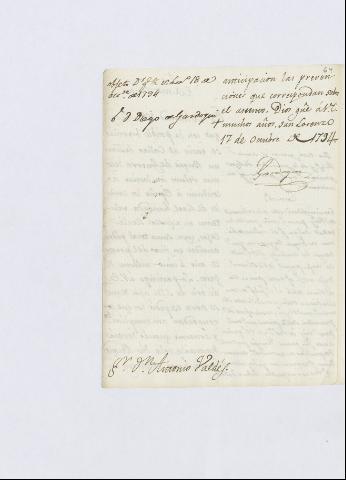 64
18 de
de 1794
Sr. D. Diego de Gardoqui
anticipacion las preven-
ciones que correspondan sobre
el asunto. Dios gũe á V.E.
muchos años. San Lorenzo
17 de Octubre de 1794.
Gardoqui
Sr. Dn. Antonio Valdés.